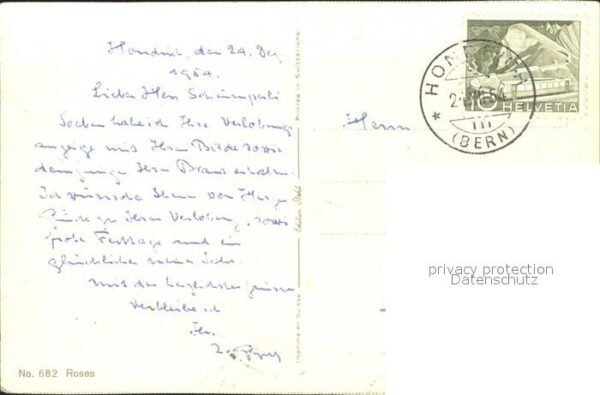 Hondrich, den 24. Dez.
1954.
Lieber Herr
Soeben habe ich Ihre Verlobungs
anzeige mit Ihrem Bilde sowie
demjenigen Ihrer Braut erhalten.
Ich wünsche Ihnen von Herzen
Glück zu Ihrer Verlobung, sowie
frohe Festtage und ein
glückliches neues Jahr.
Mit den herzlichsten Grüssen
verbleibe ich
Ihr
No. 682 Roses
Printed in Switzerland
Edition Stehli
Imprimé en Suisse
Herrn
HONDRICH
(BERN)
10 HELVETIA
privacy protection
Datenschutz